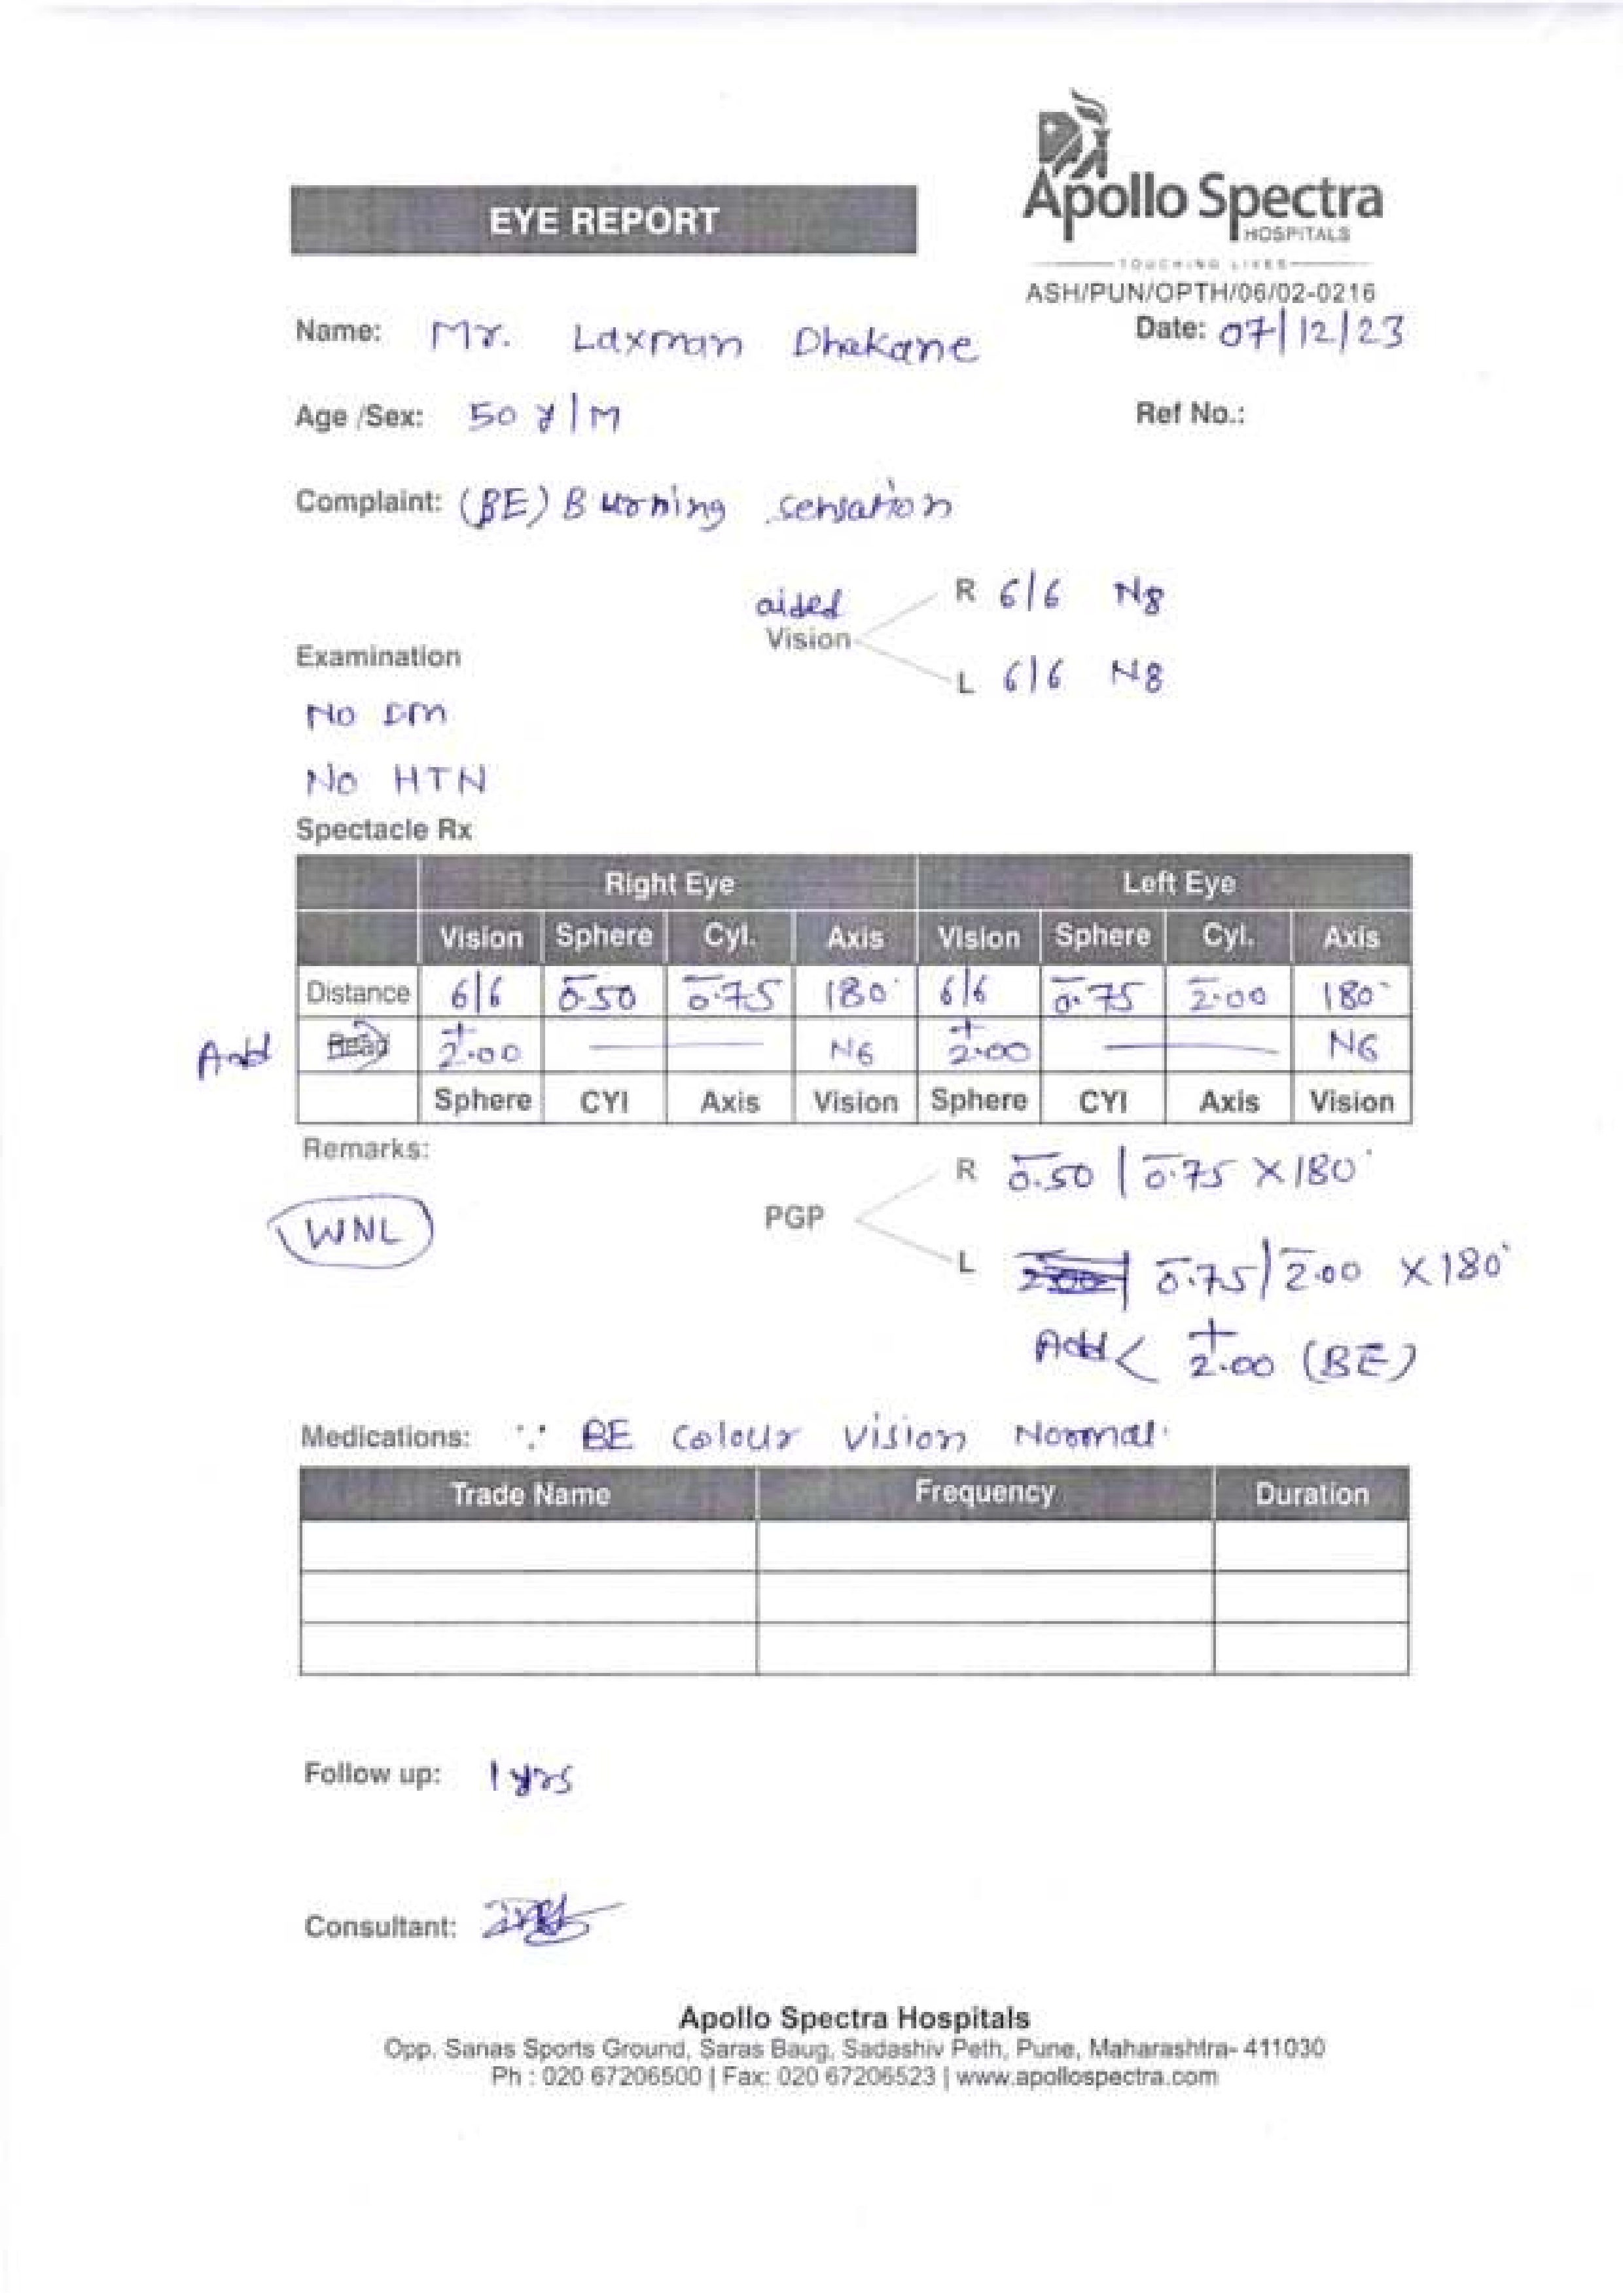 Apollo Spectra
HOSPITALS
TOUCHING LIVES
EYE REPORT
ASH/PUN/OPTH/06/02-0216
Name: Mr. Laxman Dhakane Date: 07/12/23
Age /Sex: 50 y/M Ref No.:
Complaint: (BE) Burning sensation
aided
Vision
R 6/6 N8
L 6/6 N8
Examination
No DM
No HTN
Spectacle Rx
Right Eye Left Eye
Vision Sphere Cyl. Axis Vision Sphere Cyl. Axis
Distance 6/6 -0.50 -0.75 180° 6/6 -0.75 -2.00 180°
Add Read +2.00 — N6 +2.00 — N6
Sphere CYl Axis Vision Sphere CYl Axis Vision
Remarks:
WNL
PGP
R -0.50 / -0.75 X 180°
L -0.75 / -2.00 X 180°
Add < +2.00 (BE)
Medications: ∵ BE Colour Vision Normal.
Trade Name Frequency Duration
Follow up: 1 yrs
Consultant:
Apollo Spectra Hospitals
Opp. Sanas Sports Ground, Saras Baug, Sadashiv Peth, Pune, Maharashtra- 411030
Ph : 020 67206500 | Fax: 020 67206523 | www.apollospectra.com